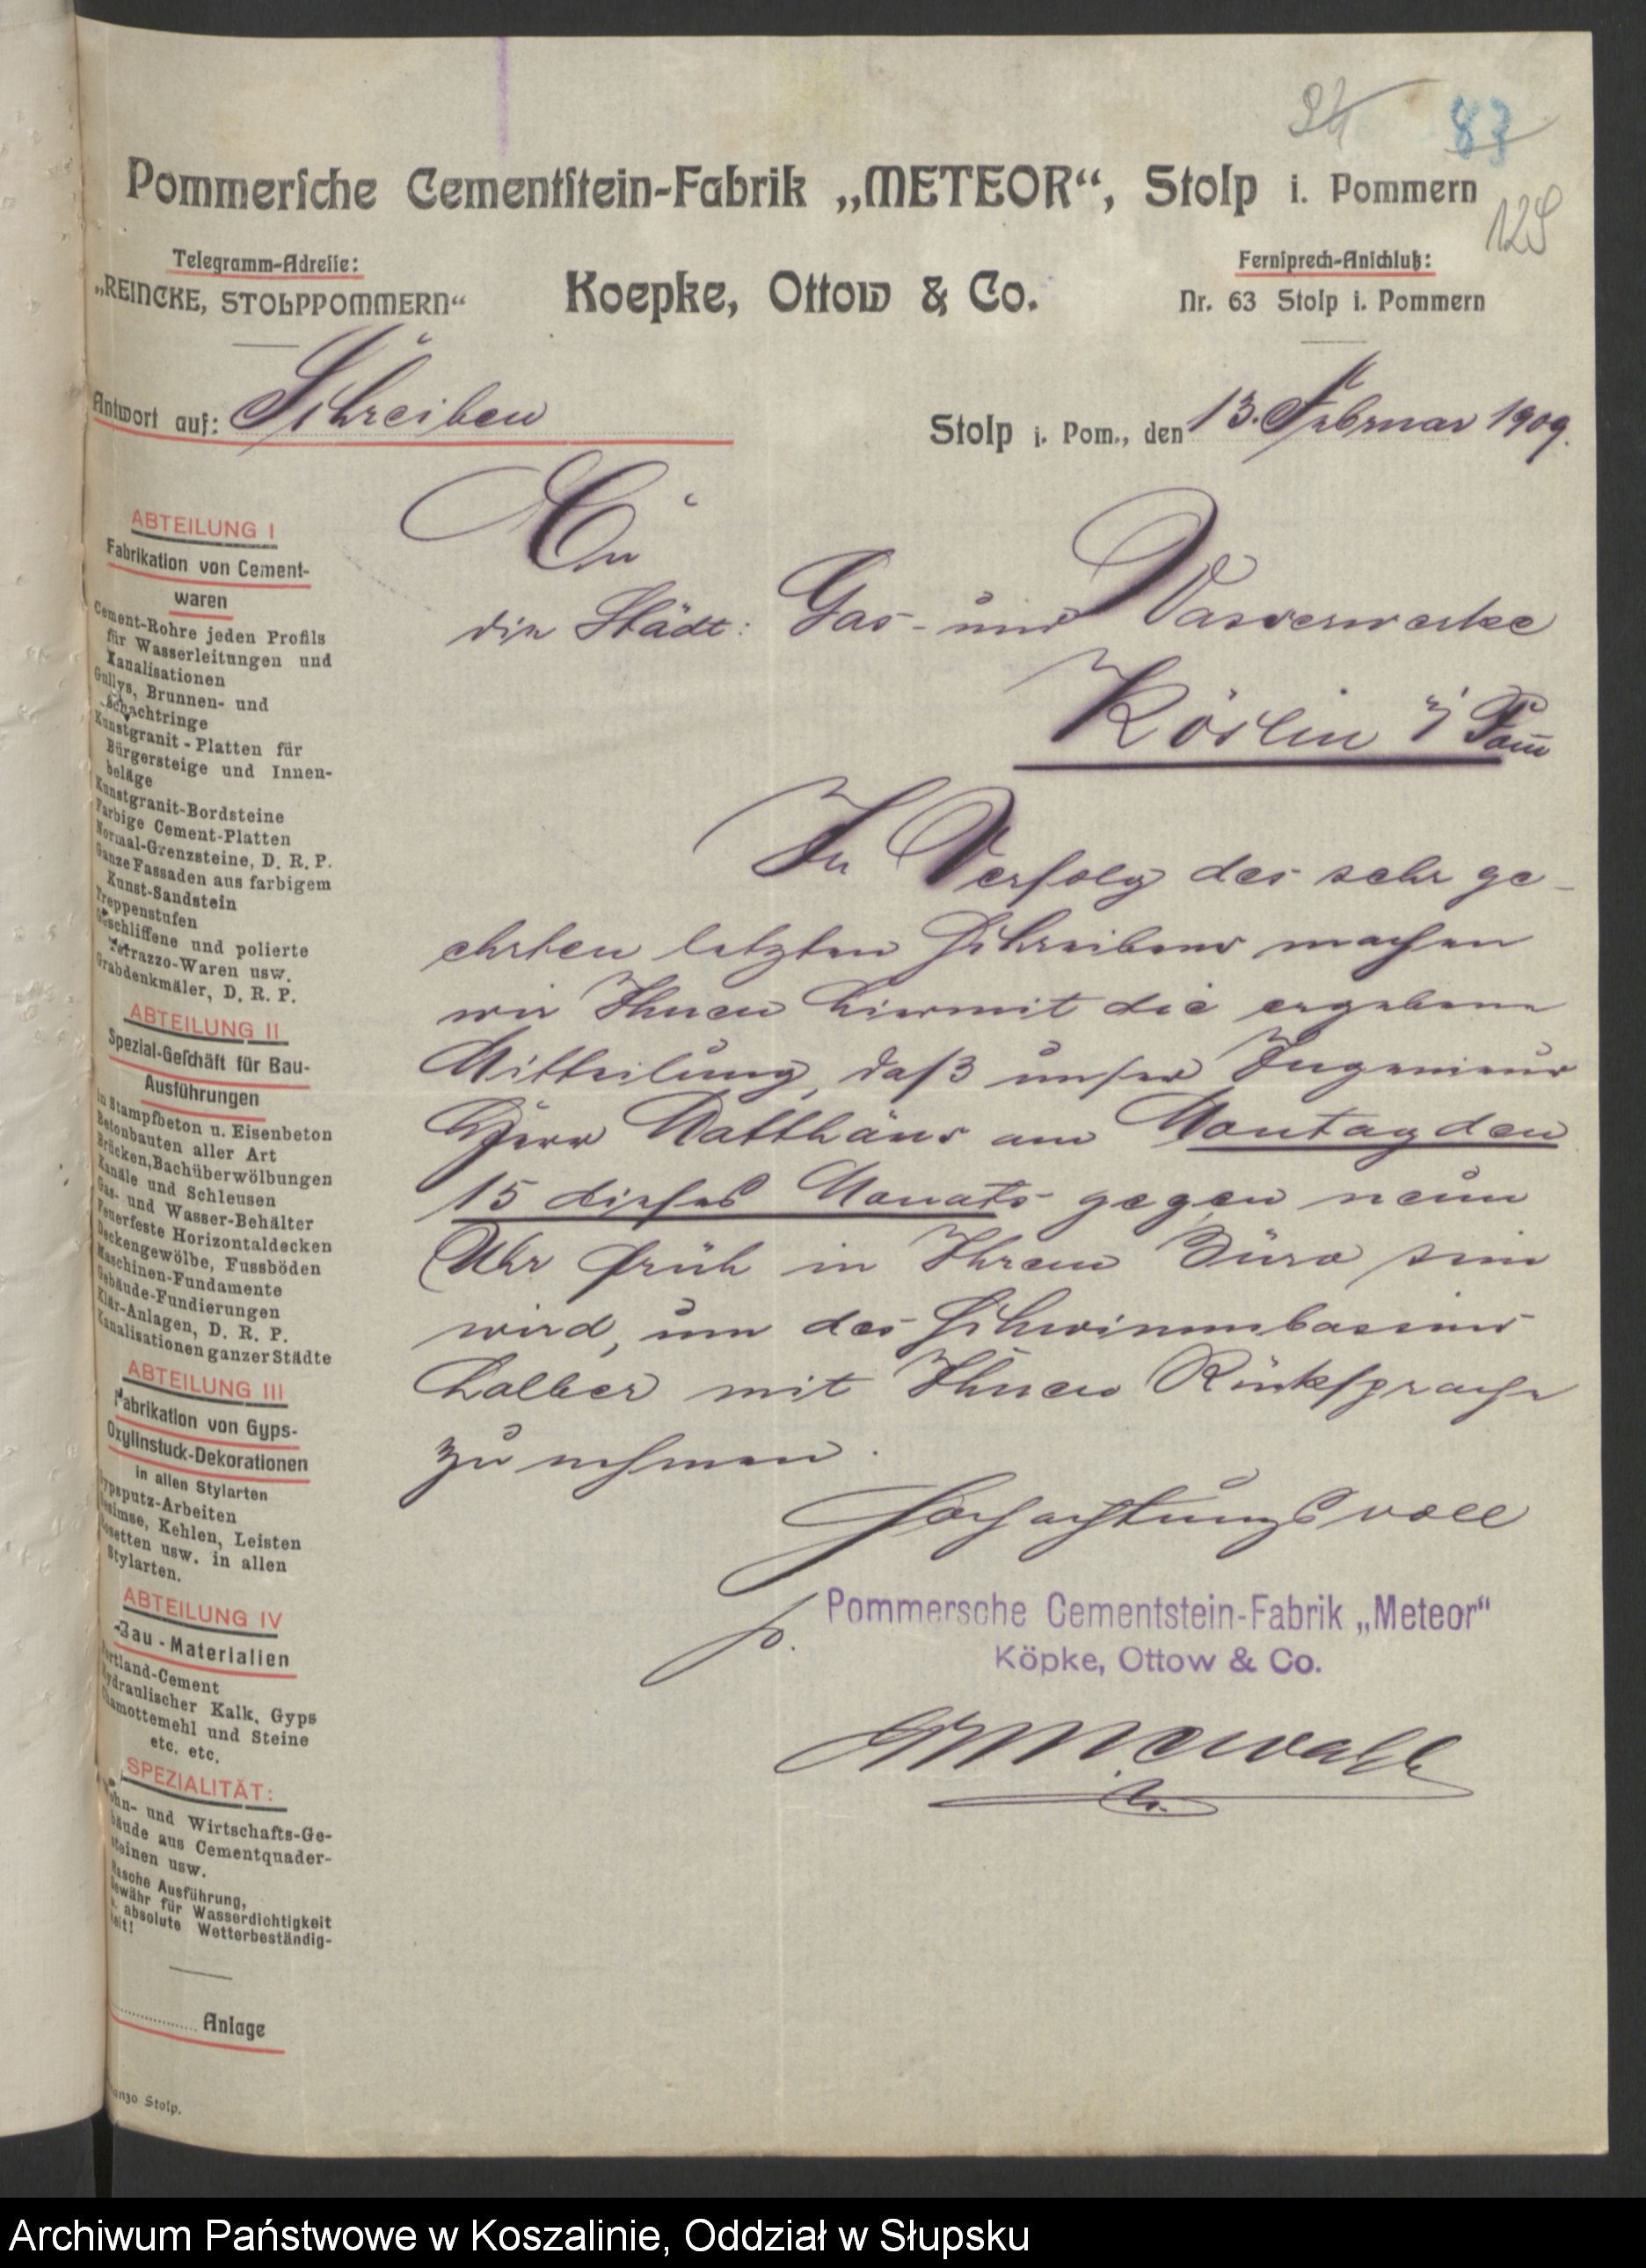 83
129
Pommersche Cementstein-Fabrik „METEOR“, Stolp i. Pommern
Telegramm-Adresse:
„REINCKE, STOLPPOMMERN“
Koepke, Ottow & Co.
Fernsprech-Anschluß:
Nr. 63 Stolp i. Pommern
Antwort auf: Schreiben
Stolp i. Pom., den 13. Februar 1909.
An
die Städt: Gas- und Wasserwerke
Köslin i/ Pom
In Verfolg des sehr ge-
ehrten letzten Schreibens machen
wir Ihnen hiermit die ergebene
Mitteilung, daß unser Ingenieur
Herr Matthäus am Montag den
15 dieses Monats gegen neun
Uhr früh in Ihrem Büro sein
wird, um des Schwimmbassins
halber mit Ihnen Rücksprache
zu nehmen.
Hochachtungsvoll
p. Pommersche Cementstein-Fabrik „Meteor“
Köpke, Ottow & Co.
ABTEILUNG I
Fabrikation von Cement-
waren
Cement-Rohre jeden Profils
für Wasserleitungen und
Kanalisationen
Gullys, Brunnen- und
Schachtringe
Kunstgranit-Platten für
Bürgersteige und Innen-
beläge
Kunstgranit-Bordsteine
Farbige Cement-Platten
Normal-Grenzsteine, D. R. P.
Ganze Fassaden aus farbigem
Kunst-Sandstein
Treppenstufen
Geschliffene und polierte
Terrazzo-Waren usw.
Grabdenkmäler, D. R. P.
ABTEILUNG II
Spezial-Geschäft für Bau-
Ausführungen
in Stampfbeton u. Eisenbeton
Betonbauten aller Art
Brücken, Bachüberwölbungen
Kanäle und Schleusen
Gas- und Wasser-Behälter
Feuerfeste Horizontaldecken
Deckengewölbe, Fussböden
Maschinen-Fundamente
Gebäude-Fundierungen
Klär-Anlagen, D. R. P.
Kanalisationen ganzer Städte
ABTEILUNG III
Fabrikation von Gyps-
Oxylinstuck-Dekorationen
in allen Stylarten
Gypsputz-Arbeiten
Gesimse, Kehlen, Leisten
Rosetten usw. in allen
Stylarten.
ABTEILUNG IV
Bau-Materialien
Portland-Cement
Hydraulischer Kalk, Gyps
Chamottemehl und Steine
etc. etc.
SPEZIALITÄT:
Wohn- und Wirtschafts-Ge-
bäude aus Cementquader-
steinen usw.
Rasche Ausführung,
Gewähr für Wasserdichtigkeit
u. absolute Wetterbeständig-
keit!
Anlage
Stolp.
Archiwum Państwowe w Koszalinie, Oddział w Słupsku